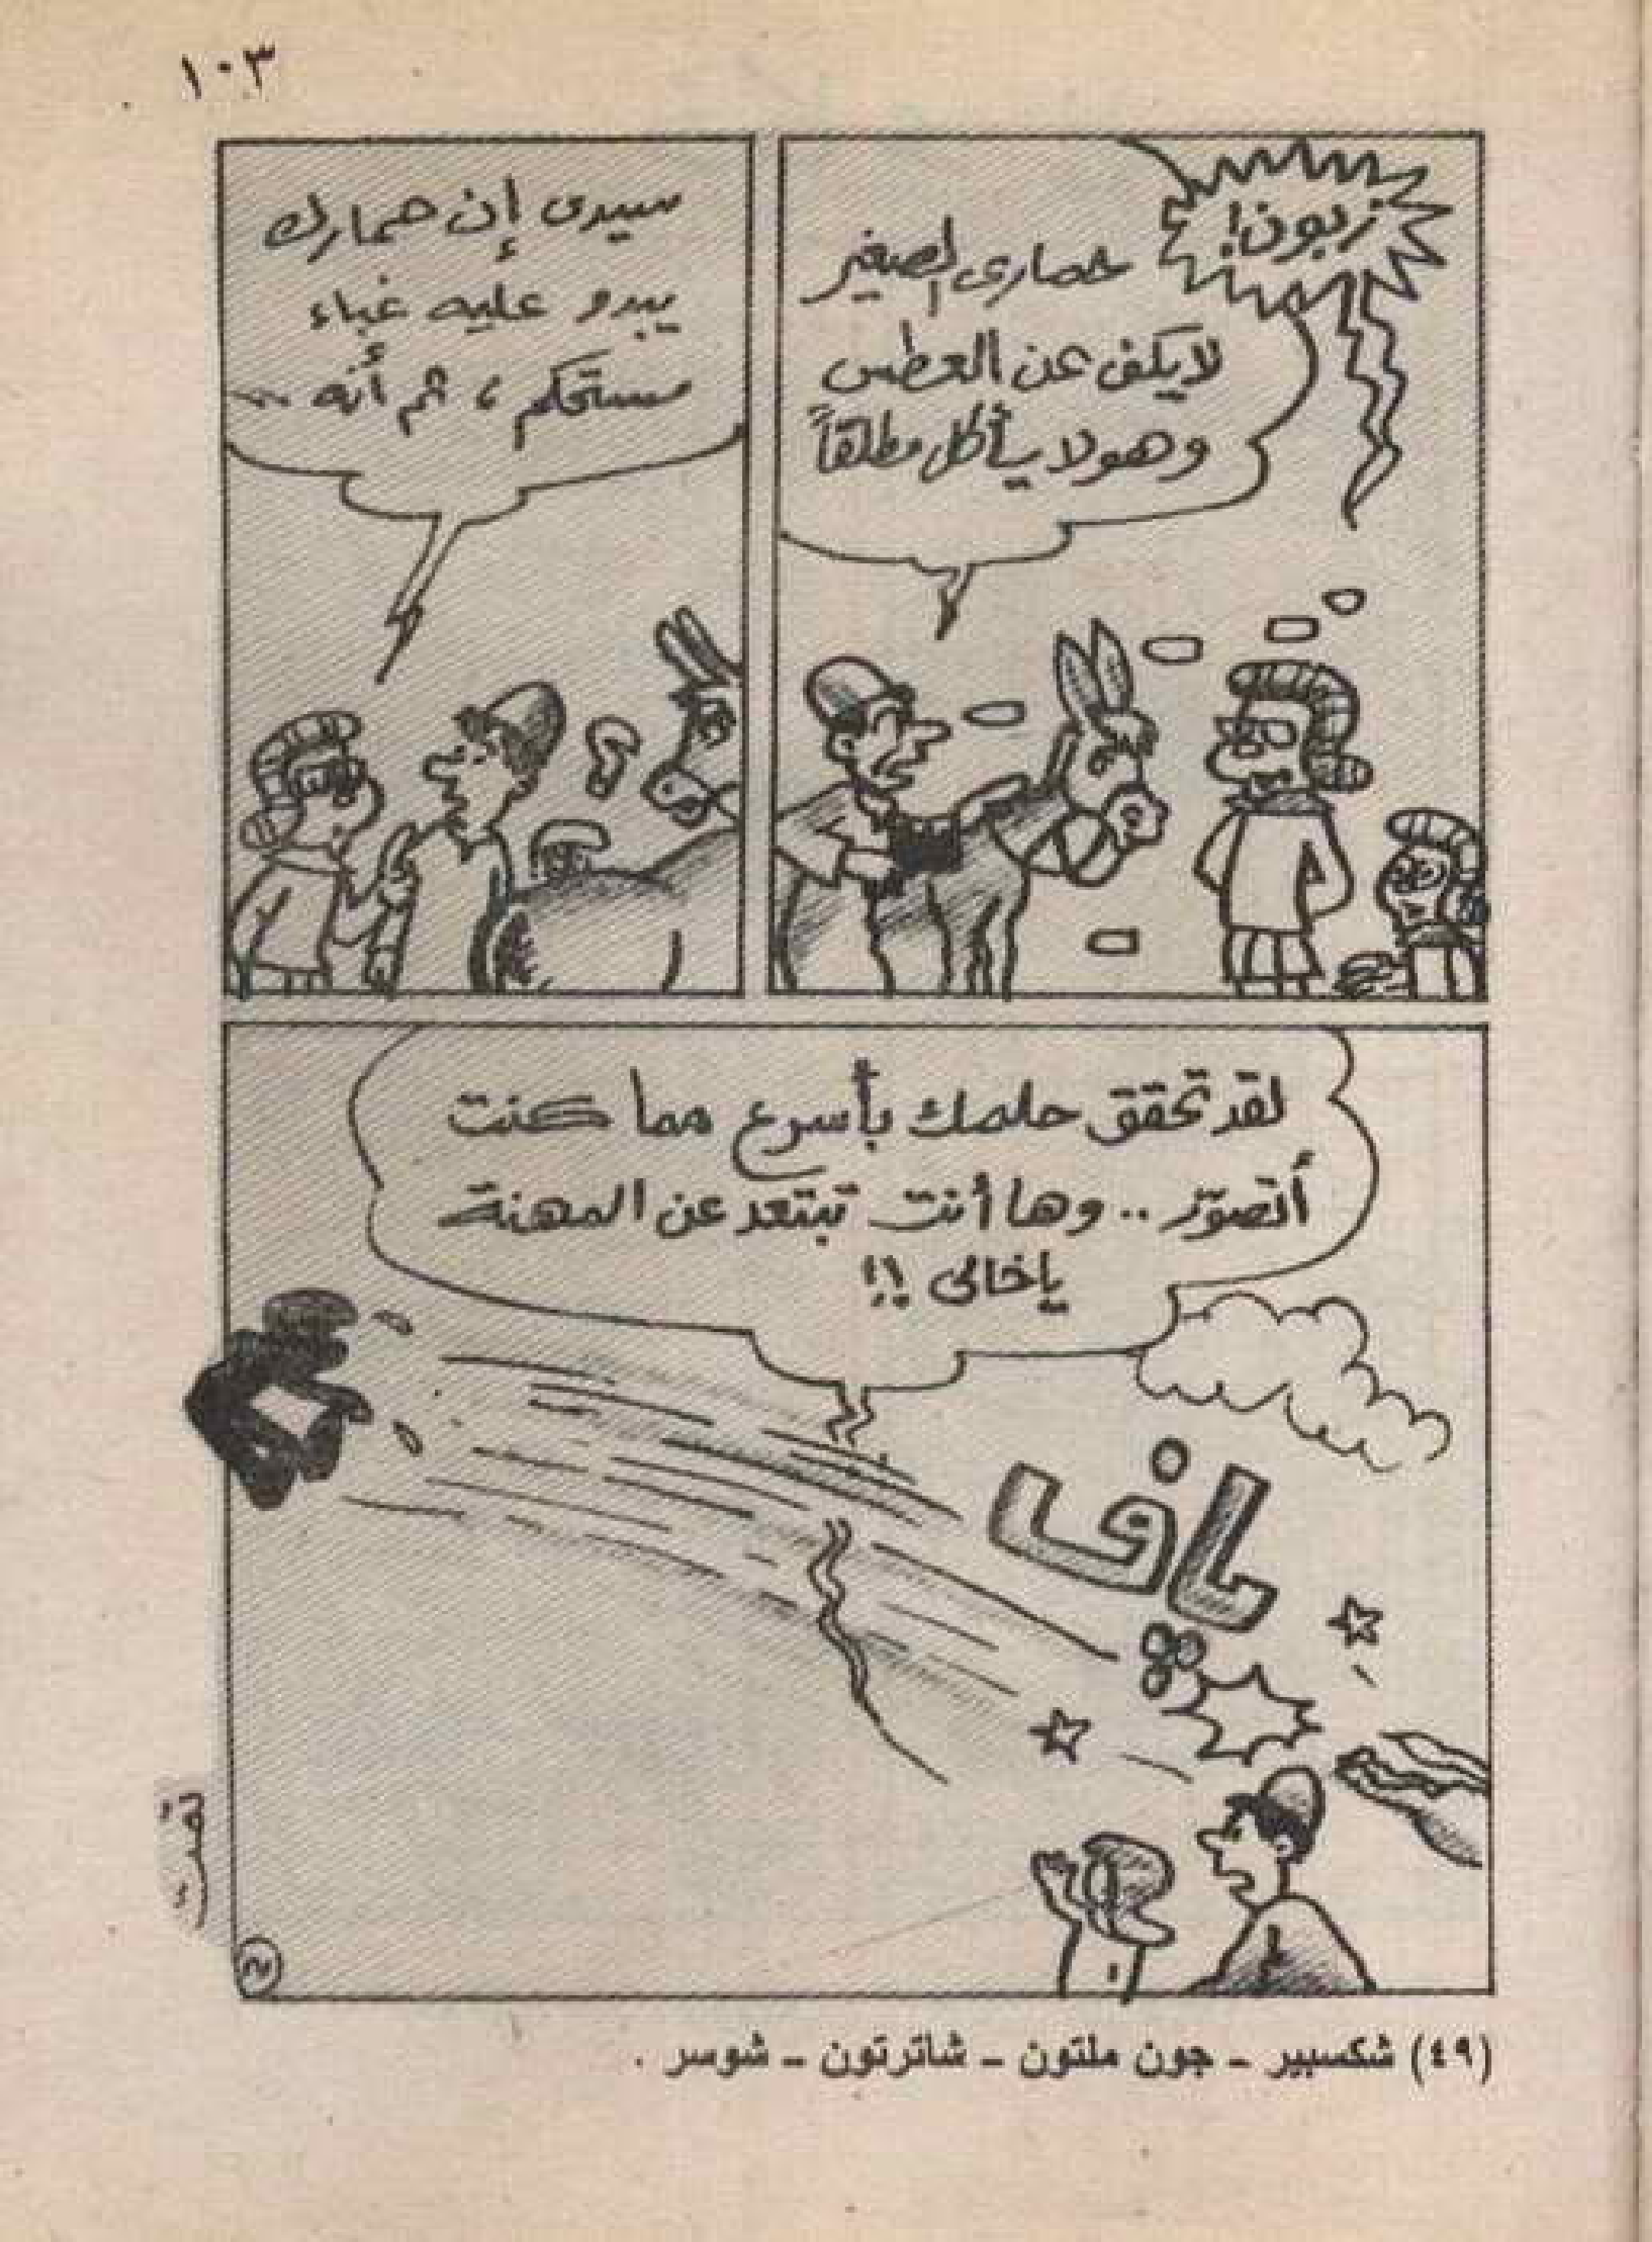 ١٠٣
زبون!
حمارى الصغير
لا يكف عن العطس
وهو لا يأكل مطلقاً
سيدى إن حمارك
يبدو عليه غباء
مستحكم ، ثم أنه ..
لقد تحقق حلمك بأسرع مما كنت
أتصور .. وها أنت تبتعد عن المهنة
يا خالى !!
(٤٩) شكسبير - جون ملتون - شاترتون - شوسر .